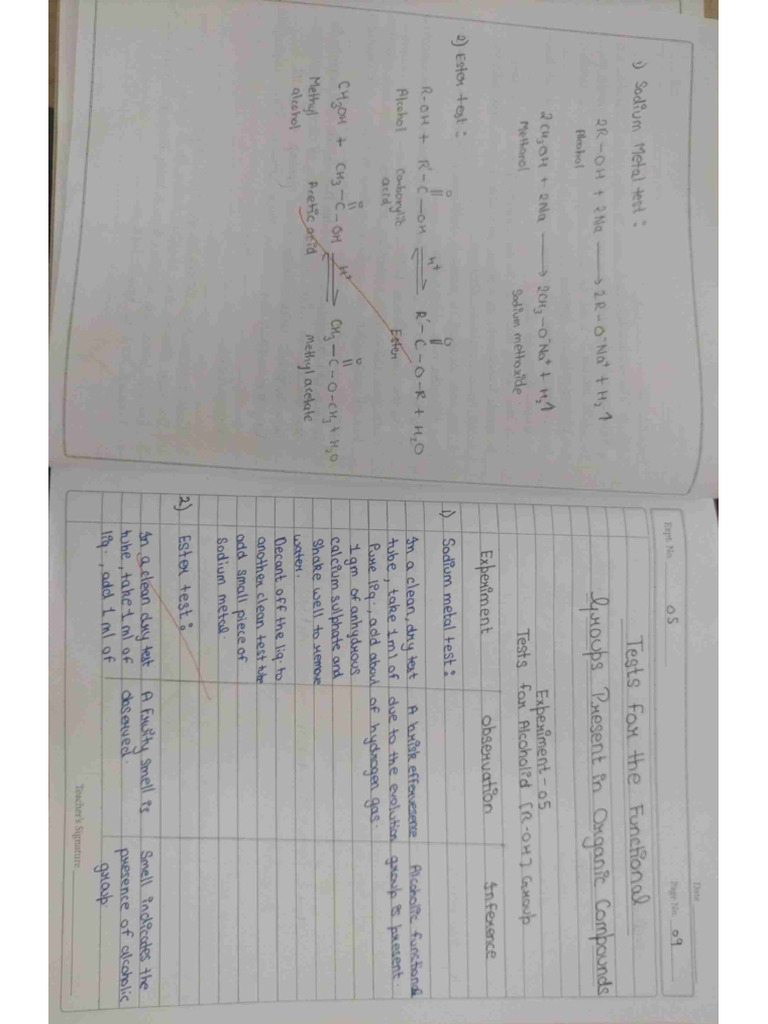 1) Sodium Metal test :
2R-OH + 2Na ⟶ 2R-O⁻Na⁺ + H₂↑
Alcohol
2CH₃OH + 2Na ⟶ 2CH₃-O⁻Na⁺ + H₂↑
Methanol Sodium methoxide
2) Ester test :
R-OH + R'-C(=O)-OH ⇌ H⁺ R'-C(=O)-O-R + H₂O
Alcohol Carboxylic acid Ester
CH₃OH + CH₃-C(=O)-OH ⇌ H⁺ CH₃-C(=O)-O-CH₃ + H₂O
Methyl alcohol Acetic acid Methyl acetate
Date
Expt. No. 05 Page No. 09
Tests for the Functional
Groups Present in Organic Compounds
Experiment - 05
Tests for Alcoholic [R-OH] Group
Experiment Observation Inference
1) Sodium metal test :
In a clean, dry test A brisk effervesence Alcoholic functional
tube, take 1 ml of due to the evolution group is present.
Pure liq., add about of hydrogen gas.
1 gm of anhydrous
calcium sulphate and
Shake well to remove
water.
Decant off the liq. to
another clean test tube
add small piece of
Sodium metal.
2) Ester test :
In a clean dry test A fruity smell is Smell indicates the
tube, take 1 ml of observed. presence of alcoholic
liq., add 1 ml of group.
Teacher's Signature